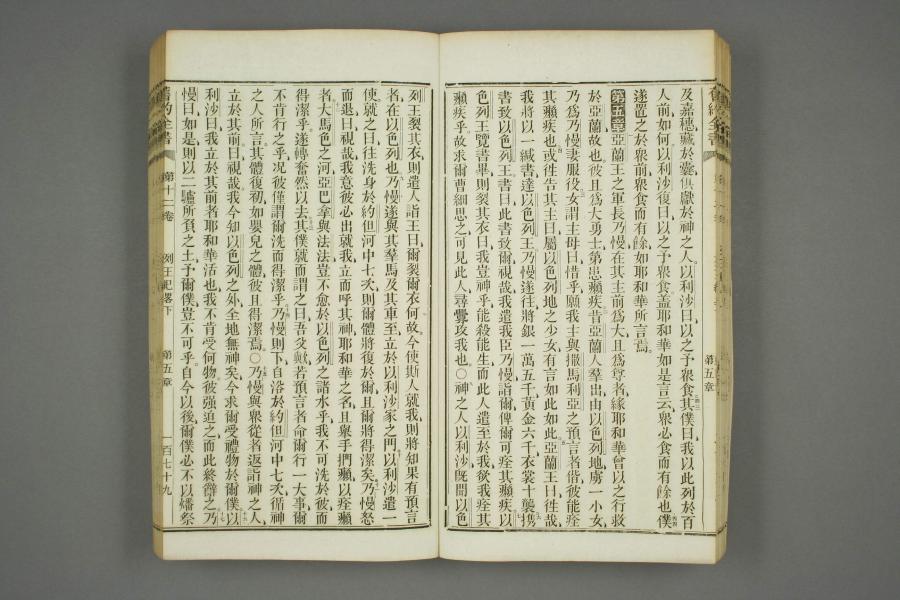 及嘉穗藏於囊俱獻於神之人以利沙曰以之予眾食其僕曰我以此列於百
人前如何以利沙復曰以之予眾食蓋耶和華如是言云眾必食而有餘也僕
遂置之於眾前眾食而有餘如耶和華所言焉
第五章 亞蘭王之軍長乃慢在其主前為大且為尊者緣耶和華曾以之行救
於亞蘭故也彼且為大勇士第患癩疾昔亞蘭人羣出由以色列地虜一小女
乃為乃慢妻服役女謂主母曰惜乎願我主與撒馬利亞之預言者偕彼能痊
其癩疾也或往告其主曰屬以色列地之少女有言如此如此亞蘭王曰往哉
我將以一緘書達以色列王乃慢遂往將銀一萬五千黃金六千衣裳十襲攜
書致以色列王書曰此書致爾視哉我遣我臣乃慢詣爾俾爾可痊其癩疾以
色列王覽書畢則裂其衣曰我豈神乎能殺能生而此人遣至於我欲我痊其
癩疾乎故求爾曹細思之可見此人尋釁攻我也○神之人以利沙既聞以色
列王裂其衣則遣人詣王曰爾裂爾衣何故今使斯人就我則將知果有預言
者在以色列也乃慢遂與其羣馬及其車至立於以利沙家之門以利沙遣一
使就之曰往洗身於約但河中七次則爾體將復於爾且爾將得潔矣乃慢怒
而退曰視哉我意彼必出就我立而呼其神耶和華之名且舉手捫癩以痊癩
者大馬色之河亞巴拿與法法豈不愈於以色列之諸水乎我不可洗於彼而
得潔乎遂轉奮然以去其僕就而謂之曰吾父歟若預言者命爾行一大事爾
不肯行之乎况彼僅謂爾洗而得潔乎乃慢則下自浴於約但河中七次循神
之人所言其體復初如嬰兒之體彼且得潔焉○乃慢與眾從者返詣神之人
立於其前曰視哉我今知以色列之外全地無神矣今求爾受禮物於爾僕以
利沙曰我立於其前者耶和華活也我不肯受何物彼强迫之而此終辭之乃
慢曰如是則以二驢所負之土予爾僕豈不可乎自今以後爾僕必不以燔祭
舊約全書
第十二卷
列王紀畧下
第五章
一百七十九
舊約全書
第五章